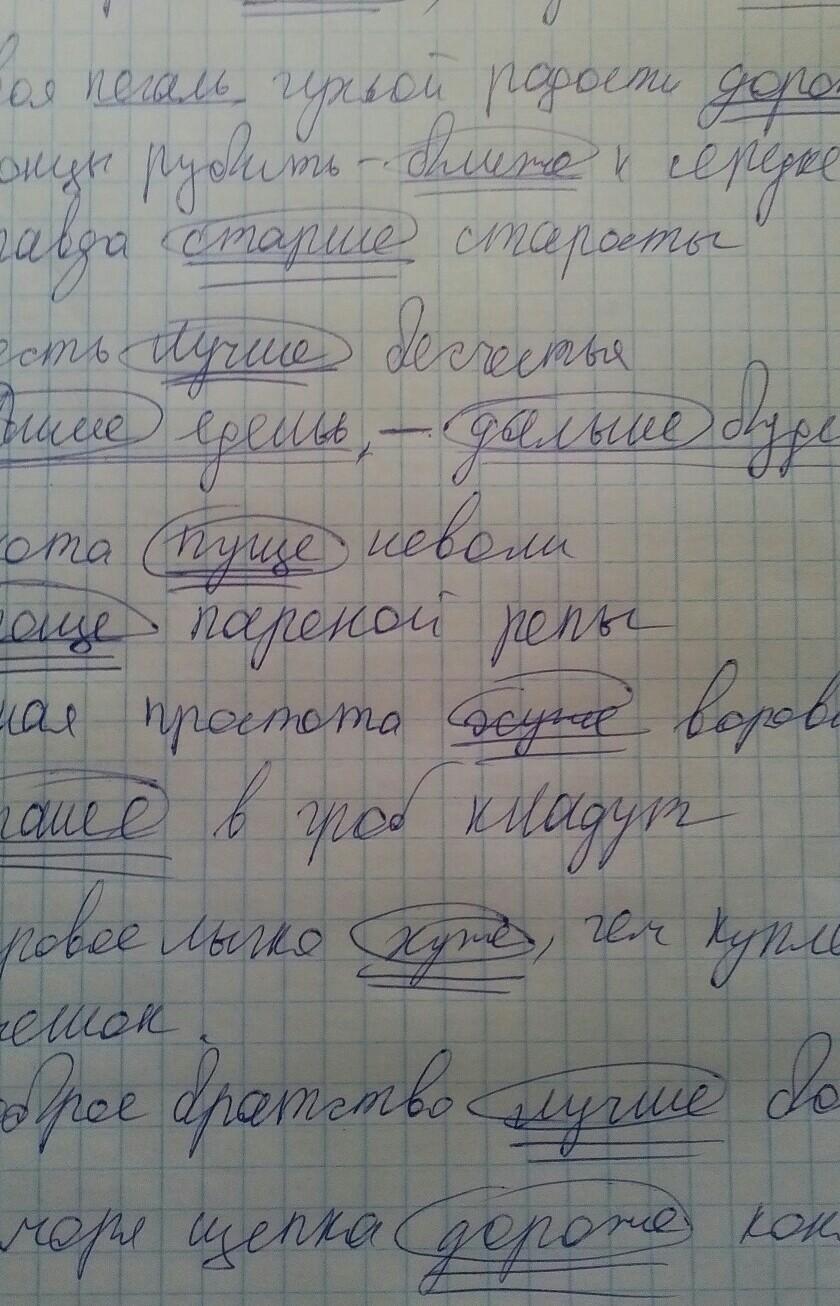 воя печаль чужой радости доро
онцы рубить - ближе к середке
равда старше старосты
есть лучше бесчестья
ише едешь, - дальше буде
хота пуще неволи
още пареной репы
ная простота хуже воровс
раше в гроб кладут
ровое лычко хуже, чем купле
мешок.
оброе братство лучше бо
моря щепка дороже кон